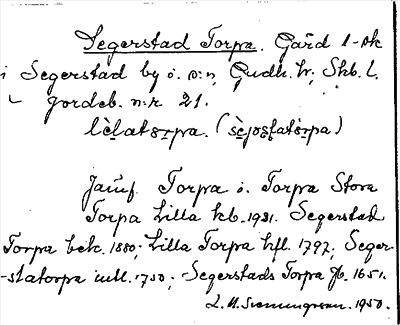 Segerstad Torpa. Gård 1-dk
i Segerstad by o. s:n, Gudh. h; Skb. l.
jordeb. n:r 21.
lèlatòrpa. (sèjosfatòrpa)
Jämf. Torpa o. Torpa Stora
Torpa Lilla kb. 1931. Segerstad
Torpa bek. 1880; Lilla Torpa hfl. 1797; Seger-
-statorpa 1750; Segerstads Torpa Jb. 1651.
1950.